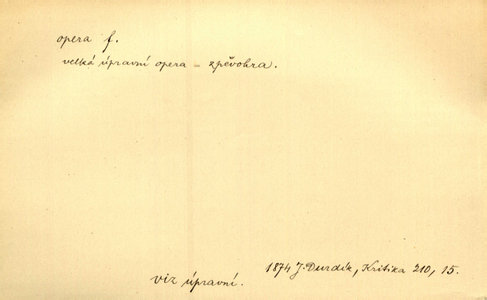 opera f.
velká úpravní opera = zpěvohra.
1874 J. Durdík, Kritika 210, 15.
viz úpravní.